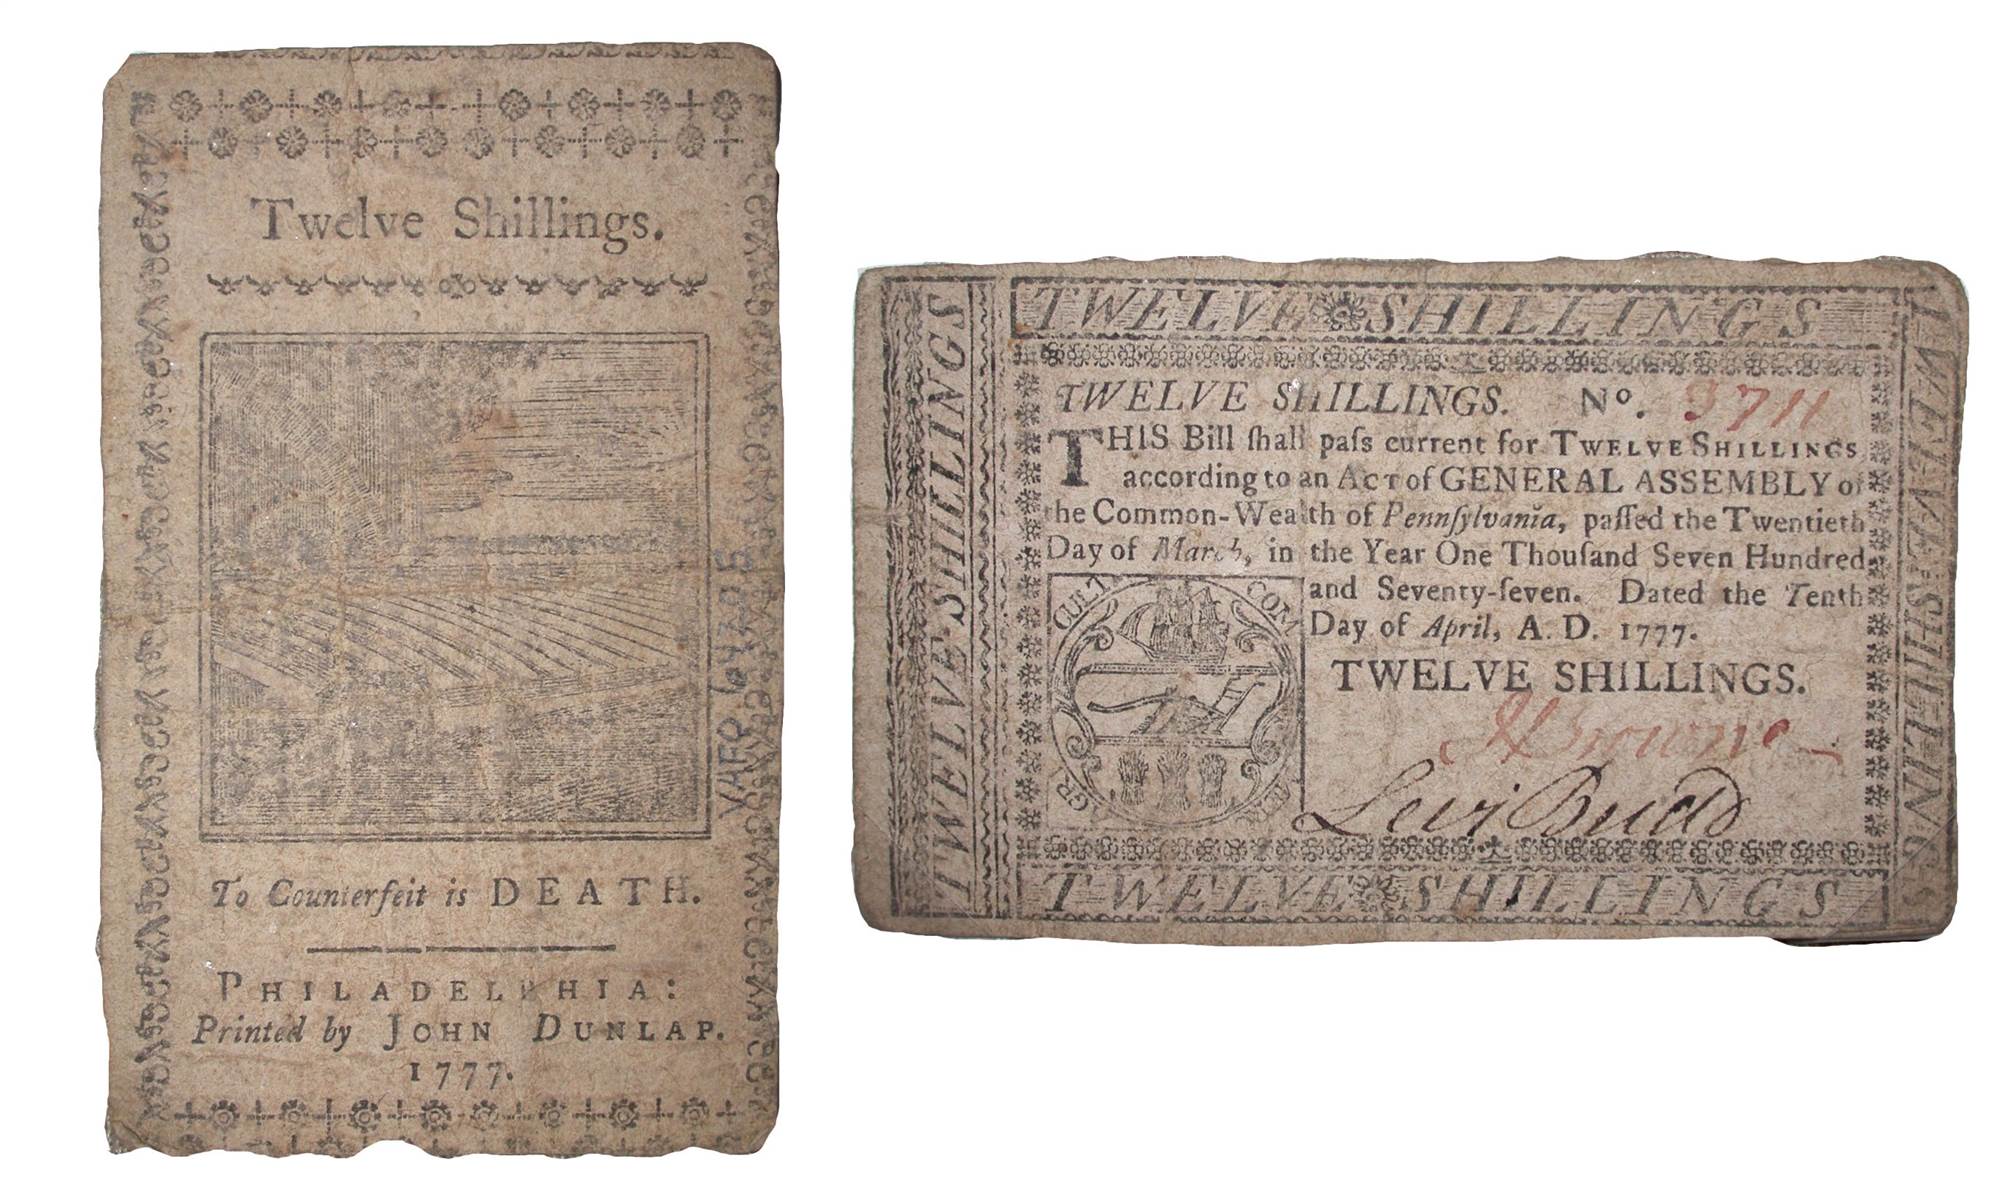 Twelve Shillings.
To Counterfeit is DEATH.
PHILADELPHIA:
Printed by JOHN DUNLAP.
1777.
TWELVE SHILLINGS
TWELVE SHILLINGS
TWELVE SHILLINGS. No. 3711
THIS Bill ſhall paſs current for TWELVE SHILLINGS
according to an ACT of GENERAL ASSEMBLY of
the Common-Wealth of Pennſylvania, paſſed the Twentieth
Day of March, in the Year One Thouſand Seven Hundred
and Seventy-ſeven. Dated the Tenth
Day of April, A. D. 1777.
CULT COM
GR
TWELVE SHILLINGS.
Levi Budd
TWELVE SHILLINGS
TWELVE SHILLINGS